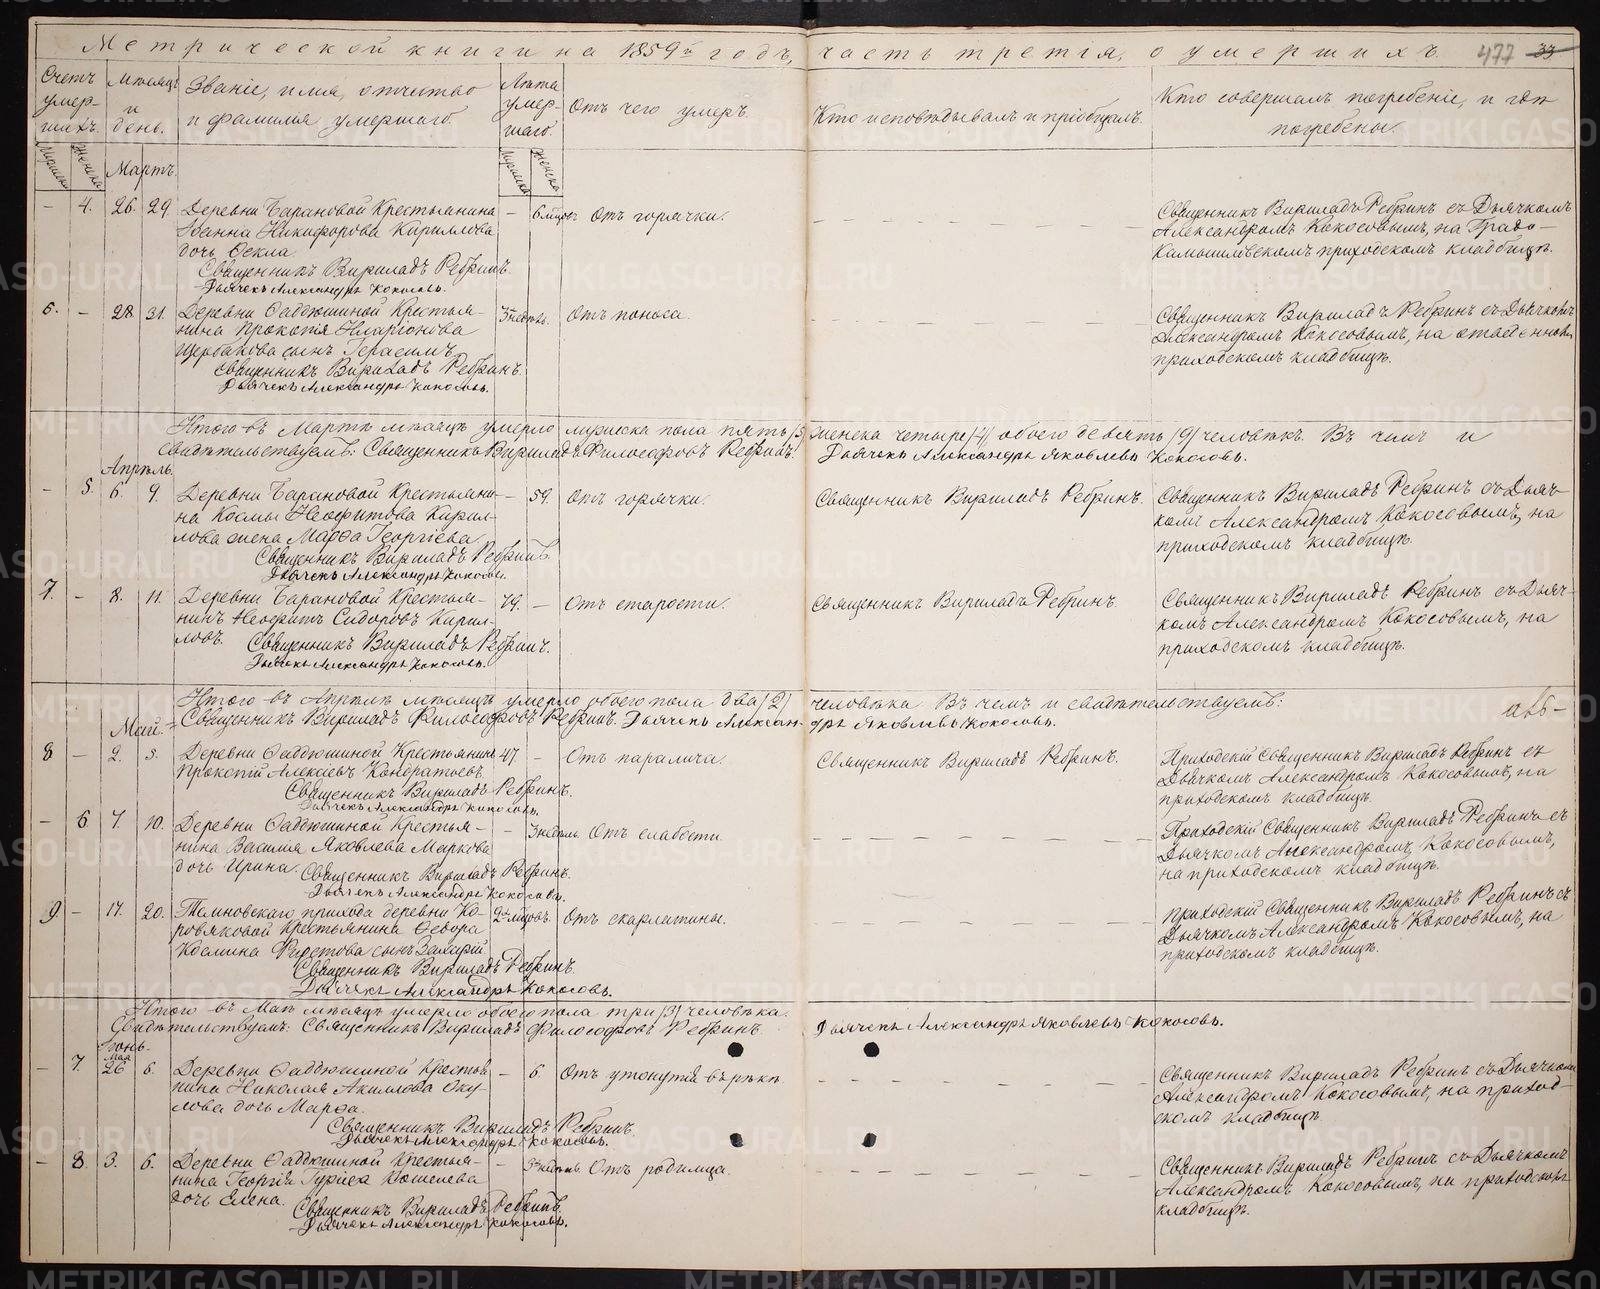 Метрической книги на 1859й годъ, часть третія, о умершихъ. 477 33
Счетъ умер- шихъ.
Мѣсяцъ и день.
Званіе, имя, отчество
и фамилія умершаго.
Лѣта умер- шаго.
Отъ чего умеръ.
Кто исповѣдывалъ и пріобщалъ.
Кто совершалъ погребеніе, и гдѣ
погребены.
Мужеска Женска
Мартъ.
Мужеска Женска
– 4. 26. 29. Деревни Барановой Крестьянина – 6 мѣсяц. Отъ горячки. Священникъ Вириладъ Ребринъ съ Дьячкомъ
Іоанна Никифорова Кириллова Александромъ Кокосовымъ, на Градо-
дочь Ѳекла. Камышловскомъ приходскомъ кладбищѣ.
Священникъ Вириладъ Ребринъ.
Дьячекъ Александръ Кокосовъ.
6. – 28. 31. Деревни Ѳаддюшиной Крестья- 3 недѣль. Отъ поноса. Священникъ Вириладъ Ребринъ съ Дьячкомъ
нина Прокопія Иларіонова Александромъ Кокосовымъ, на
Щербакова сынъ Герасимъ. приходскомъ кладбищѣ.
Священникъ Вириладъ Ребринъ.
Дьячекъ Александръ Кокосовъ.
Итого въ Мартѣ мѣсяцѣ умерло мужеска пола пять /5/ женска четыре /4/ обоего девять /9/ человѣкъ. Въ чемъ и
свидѣтельствуемъ: Священникъ Вириладъ Философовъ Ребринъ. Дьячекъ Александръ Яковлевъ Кокосовъ.
Апрѣль.
– 5. 6. 9. Деревни Барановой Крестьяни- – 59. Отъ горячки. Священникъ Вириладъ Ребринъ. Священникъ Вириладъ Ребринъ съ Дьяч-
на Космы Неофитова Кирил- комъ Александромъ Кокосовымъ, на
лова жена Марѳа Георгіева. приходскомъ кладбищѣ.
Священникъ Вириладъ Ребринъ.
Дьячекъ Александръ Кокосовъ.
7. – 8. 11. Деревни Барановой Крестья- 79. – Отъ старости. Священникъ Вириладъ Ребринъ. Священникъ Вириладъ Ребринъ съ Дьяч-
нинъ Неофитъ Сидоровъ Кирил- комъ Александромъ Кокосовымъ, на
ловъ. приходскомъ кладбищѣ.
Священникъ Вириладъ Ребринъ.
Дьячекъ Александръ Кокосовъ.
Итого въ Апрѣлѣ мѣсяцѣ умерло обоего пола два /2/ человѣка. Въ чемъ и свидѣтельствуемъ:
Священникъ Вириладъ Философовъ Ребринъ. Дьячекъ Александръ Яковлевъ Кокосовъ.
Май.
8 – 2. 5. Деревни Ѳаддюшиной Крестьянинъ 47. – Отъ паралича. Священникъ Вириладъ Ребринъ. Приходскій Священникъ Вириладъ Ребринъ съ
Прокопій Алексіевъ Кондратьевъ. Дьячкомъ Александромъ Кокосовымъ, на
приходскомъ кладбищѣ.
Священникъ Вириладъ Ребринъ.
Дьячекъ Александръ Кокосовъ.
– 6. 7. 10. Деревни Ѳаддюшиной Крестья- – 3 недѣль Отъ слабости. Приходскій Священникъ Вириладъ Ребринъ съ
нина Василія Яковлева Маркова Дьячкомъ Александромъ Кокосовымъ,
дочь Ирина. на приходскомъ кладбищѣ.
Священникъ Вириладъ Ребринъ.
Дьячекъ Александръ Кокосовъ.
9 – 17. 20. прихода деревни Ко- Отъ скарлатины. Приходскій Священникъ Вириладъ Ребринъ съ
ровяковой Крестьянина Ѳедора Дьячкомъ Александромъ Кокосовымъ, на
Космина сынъ Захарій. приходскомъ кладбищѣ.
Священникъ Вириладъ Ребринъ.
Дьячекъ Александръ Кокосовъ.
Итого въ Маѣ мѣсяцѣ умерло обоего пола три /3/ человѣка.
Свидѣтельствуемъ: Священникъ Вириладъ Философовъ Ребринъ. Дьячекъ Александръ Яковлевъ Кокосовъ.
Іюнь.
Мая
– 7. 26 6. Деревни Ѳаддюшиной Крестья- – 6. Отъ утонутія въ рѣкѣ. Священникъ Вириладъ Ребринъ съ Дьячкомъ
нина Николая Акилова Оку- Александромъ Кокосовымъ, на приход-
лова дочь Марѳа. скомъ кладбищѣ.
Священникъ Вириладъ Ребринъ.
Дьячекъ Александръ Кокосовъ.
– 8. 3. 6. Деревни Ѳаддюшиной Крестья- – недѣль. Отъ родимца. Священникъ Вириладъ Ребринъ съ Дьячкомъ
нина Георгія Гурьева Кошелева Александромъ Кокосовымъ, на приходскомъ
дочь Елена. кладбищѣ.
Священникъ Вириладъ Ребринъ.
Дьячекъ Александръ Кокосовъ.
METRIKI.GASO-URAL.RU